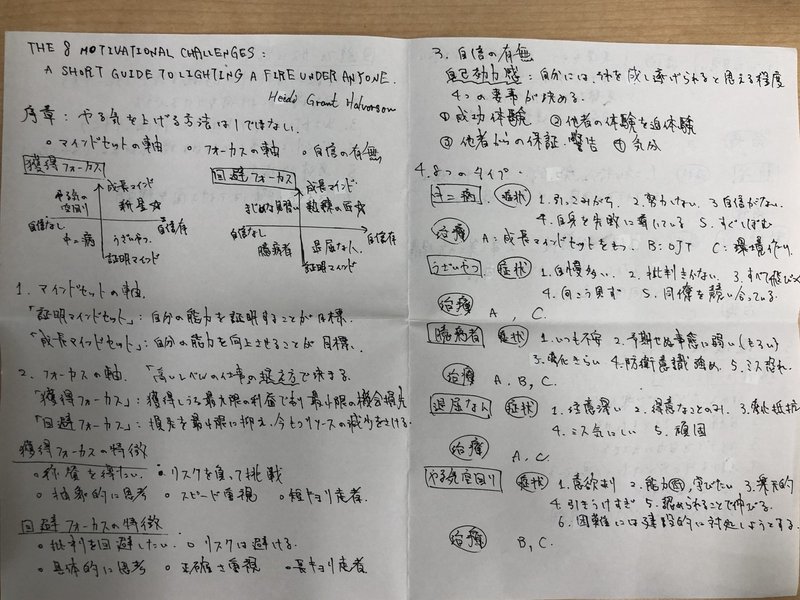 THE 8 MOTIVATIONAL CHALLENGES:
A SHORT GUIDE TO LIGHTING A FIRE UNDER ANYONE.
Heidi Grant Halvorson
序章: やる気を上げる方法は1つではない.
○マインドセットの軸 ○フォーカスの軸 ○自信の有無
獲得フォーカス
回避フォーカス
やる気の空回り
成長マインド
新星☆
自信なし
自信有
中二病
うざいやつ
証明マインド
成長マインド
まじめな見習い
熟練の匠☆
自信なし
自信有
臆病者
退屈な人
証明マインド
1. マインドセットの軸.
「証明マインドセット」: 自分の能力を証明することが目標.
「成長マインドセット」: 自分の能力を向上させることが目標.
2. フォーカスの軸. 「高いレベルの仕事の捉え方で決まる
「獲得フォーカス」: 獲得しうる最大限の利益であり最小限の機会損失
「回避フォーカス」: 損失を最小限に抑え、今もつリソースの減少をさける.
獲得フォーカスの特徴
○称賛を得たい. ○リスクを負って挑戦
○抽象的に思考 ○スピード重視 ○短キョリ走者.
回避フォーカスの特徴
○批判を回避したい. ○リスクは避ける.
○具体的に思考 ○正確さ重視 ○長キョリ走者
3. 自信の有無
自己効力感: 自分には、それを成し遂げられると思える程度
4つの要素が決める.
①成功体験 ②他者の体験を追体験
③他者からの保証.警告 ④気分
4. 8つのタイプ.
中二病. 症状 1. 引っこみがち 2. 努力しない. 3. 自信がない.
4. 自身を失敗に導いている 5. すぐしぼむ
治療 A: 成長マインドセットをもつ. B: OJT C: 環境作り.
うざいやつ 症状 1. 自慢多い. 2. 批判きかない. 3. すべて飛びつく
4. 向こう見ず 5. 同僚を競い合っている.
治療 A, C.
臆病者 症状 1. いつも不安 2. 予期せぬ事態に弱い(もろい)
3. 変化きらい 4. 防衛意識強め. 5. ミス恐れ.
治療 A. B, C.
退屈な人 症状 1. 注意深い 2. 得意なことのみ. 3. 変化抵抗
4. ミス気にしい 5. 頑固
治療 A, C.
やる気空回り 症状 1. 意欲あり 2. 能力, 学びたい 3. 楽天的
4. 引きうけすぎ 5. 認められることで伸びる.
6. 困難には建設的に対処しようとする.
治療 B, C.